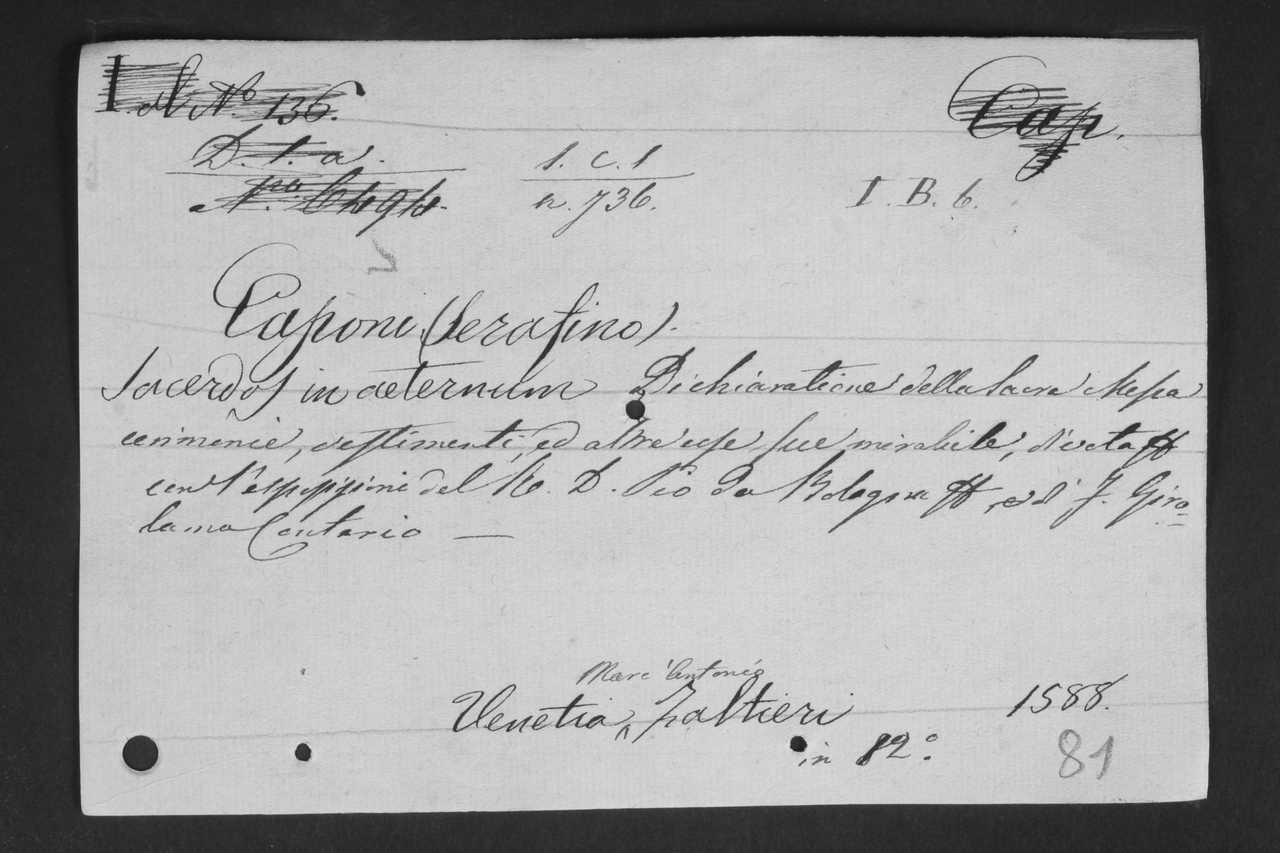 N.º 136. Cap.
D. 1. a. 1. C. 1
n. 736. I. B. 6.
Caponi (Serafino).
Sacerdos in aeternum Dichiaratione della Sacra Messa
cerimonie, vestimenti, ed altre cose sue mirabile, divota
con l'espositioni del R. D. Pio da Bologna ed J. Giro=
lamo Cantario —
Marc'Antonio
Venetia Zaltieri 1588.
in 12.º
81